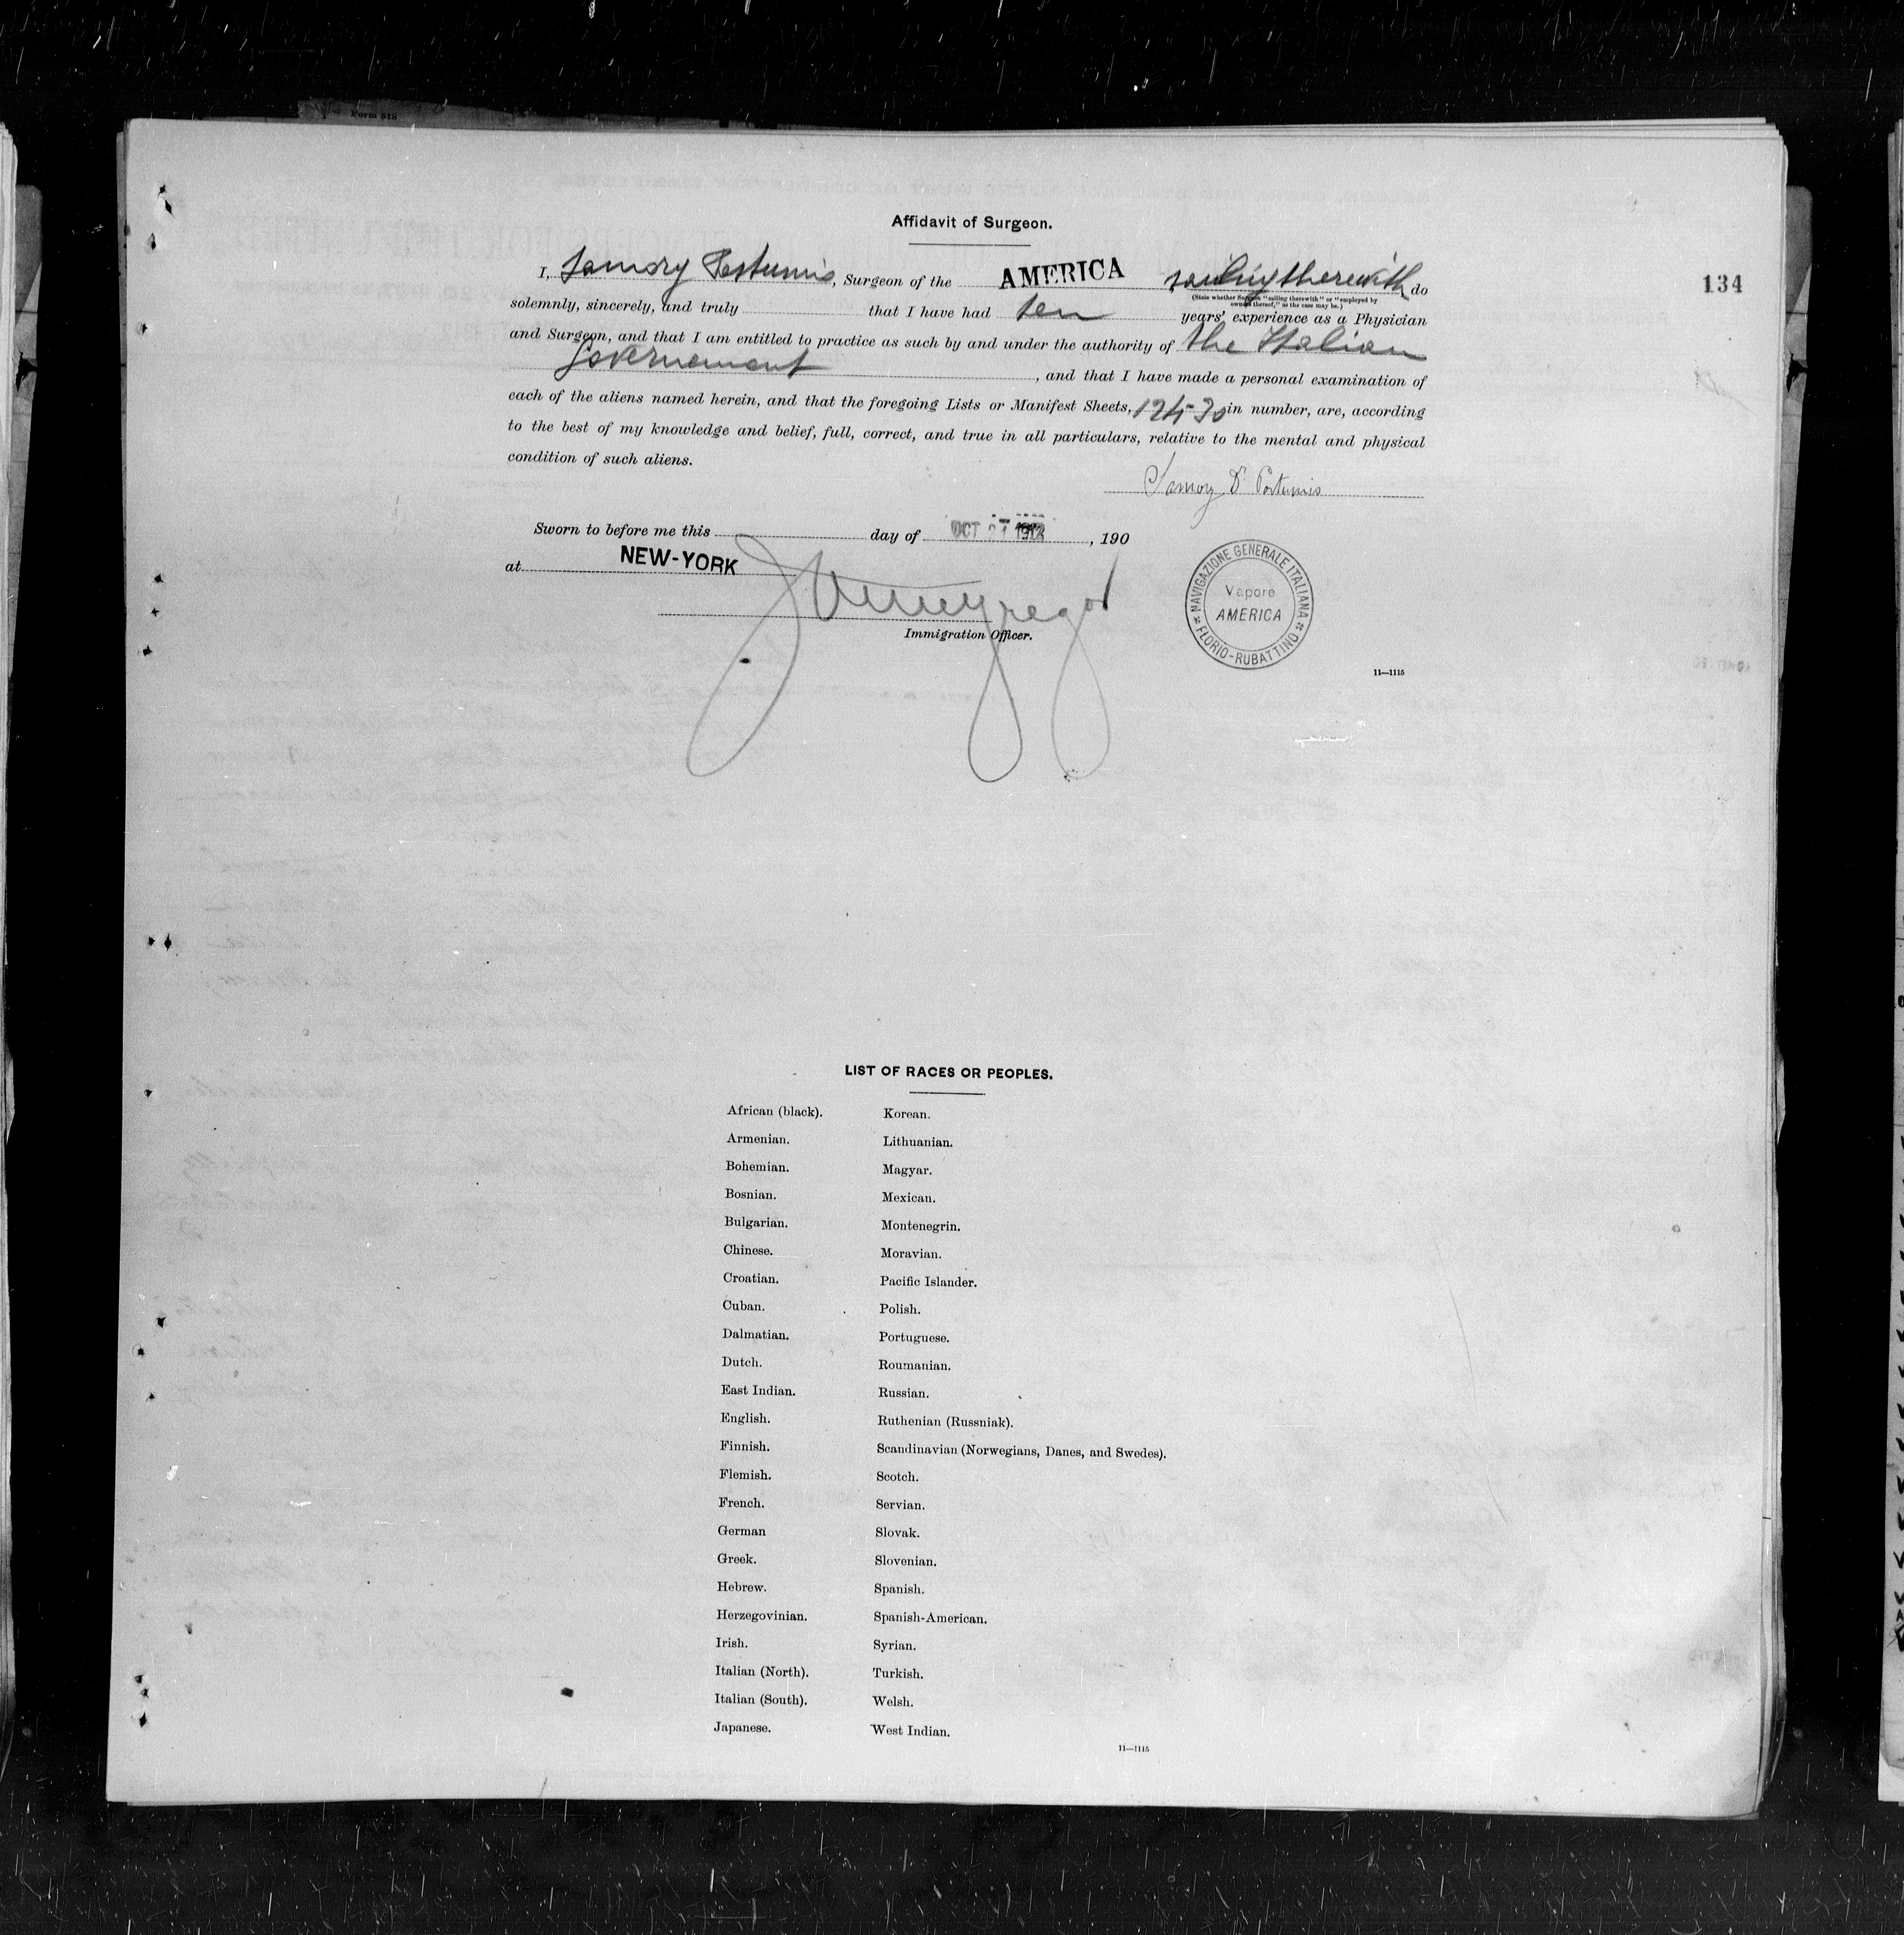 Form 515
Affidavit of Surgeon.
134
I, Samory Postumis, Surgeon of the AMERICA sailing therewith do
(State whether Surgeon "sailing therewith" or "employed by
owners thereof," as the case may be.)
solemnly, sincerely, and truly that I have had ten years' experience as a Physician
and Surgeon, and that I am entitled to practice as such by and under the authority of the Italian
Governement, and that I have made a personal examination of
each of the aliens named herein, and that the foregoing Lists or Manifest Sheets, in number, are, according
to the best of my knowledge and belief, full, correct, and true in all particulars, relative to the mental and physical
condition of such aliens.
Samory Dr Postumis
Sworn to before me this day of OCT 21 1912, 190
at NEW-YORK
Immigration Officer.
NAVIGAZIONE GENERALE ITALIANA
Vapore
AMERICA
FLORIO-RUBATTINO
11—1115
LIST OF RACES OR PEOPLES.
African (black). Korean.
Armenian. Lithuanian.
Bohemian. Magyar.
Bosnian. Mexican.
Bulgarian. Montenegrin.
Chinese. Moravian.
Croatian. Pacific Islander.
Cuban. Polish.
Dalmatian. Portuguese.
Dutch. Roumanian.
East Indian. Russian.
English. Ruthenian (Russniak).
Finnish. Scandinavian (Norwegians, Danes, and Swedes).
Flemish. Scotch.
French. Servian.
German Slovak.
Greek. Slovenian.
Hebrew. Spanish.
Herzegovinian. Spanish-American.
Irish. Syrian.
Italian (North). Turkish.
Italian (South). Welsh.
Japanese. West Indian.
11—1115